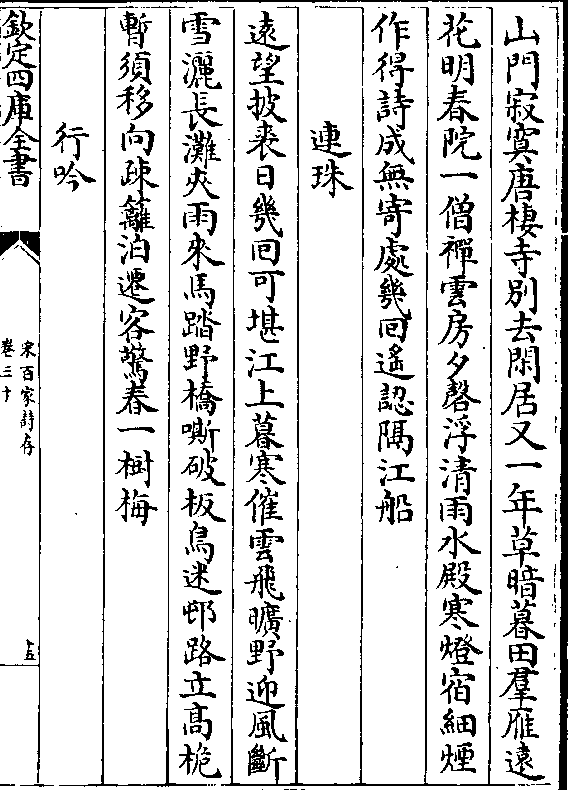 山門寂寞唐棲寺別去閑居又一年草暗暮田羣雁遠
花明春院一僧禪雲房夕磬浮清雨水殿寒燈宿細煙
作得詩成無寄處幾回遙認隔江船
連珠
遠望披裘日幾回可堪江上暮寒催雲飛曠野迎風斷
雪灑長灘夾雨來馬踏野橋嘶破板鳥迷邨路立高桅
暫須移向疎籬泊遷客驚春一樹梅
行吟
欽定四庫全書
宋百家詩存
卷三十
十五